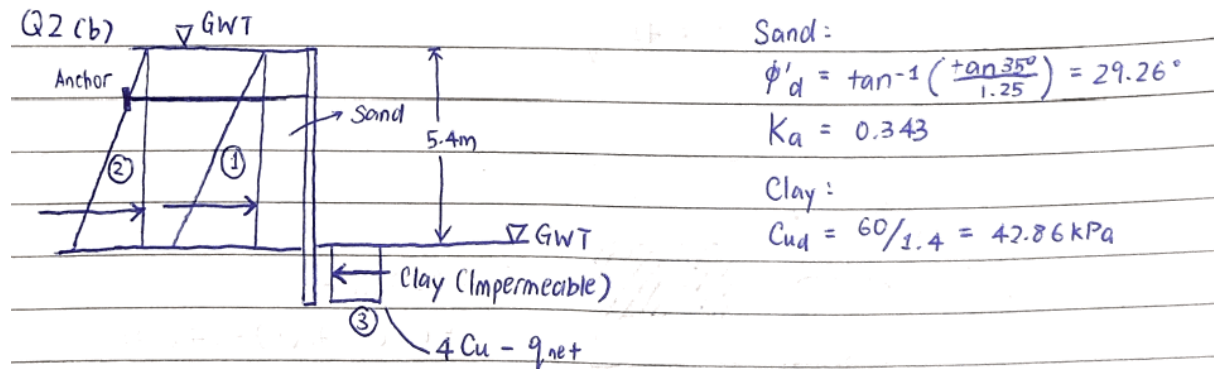 Q2 (b)
GWT
Anchor
Sand
5.4m
②
①
GWT
Clay (Impermeable)
③
4Cu - qnet
Sand:
ϕ'd = tan-1 (tan 35° / 1.25) = 29.26°
Ka = 0.343
Clay:
Cud = 60/1.4 = 42.86 kPa